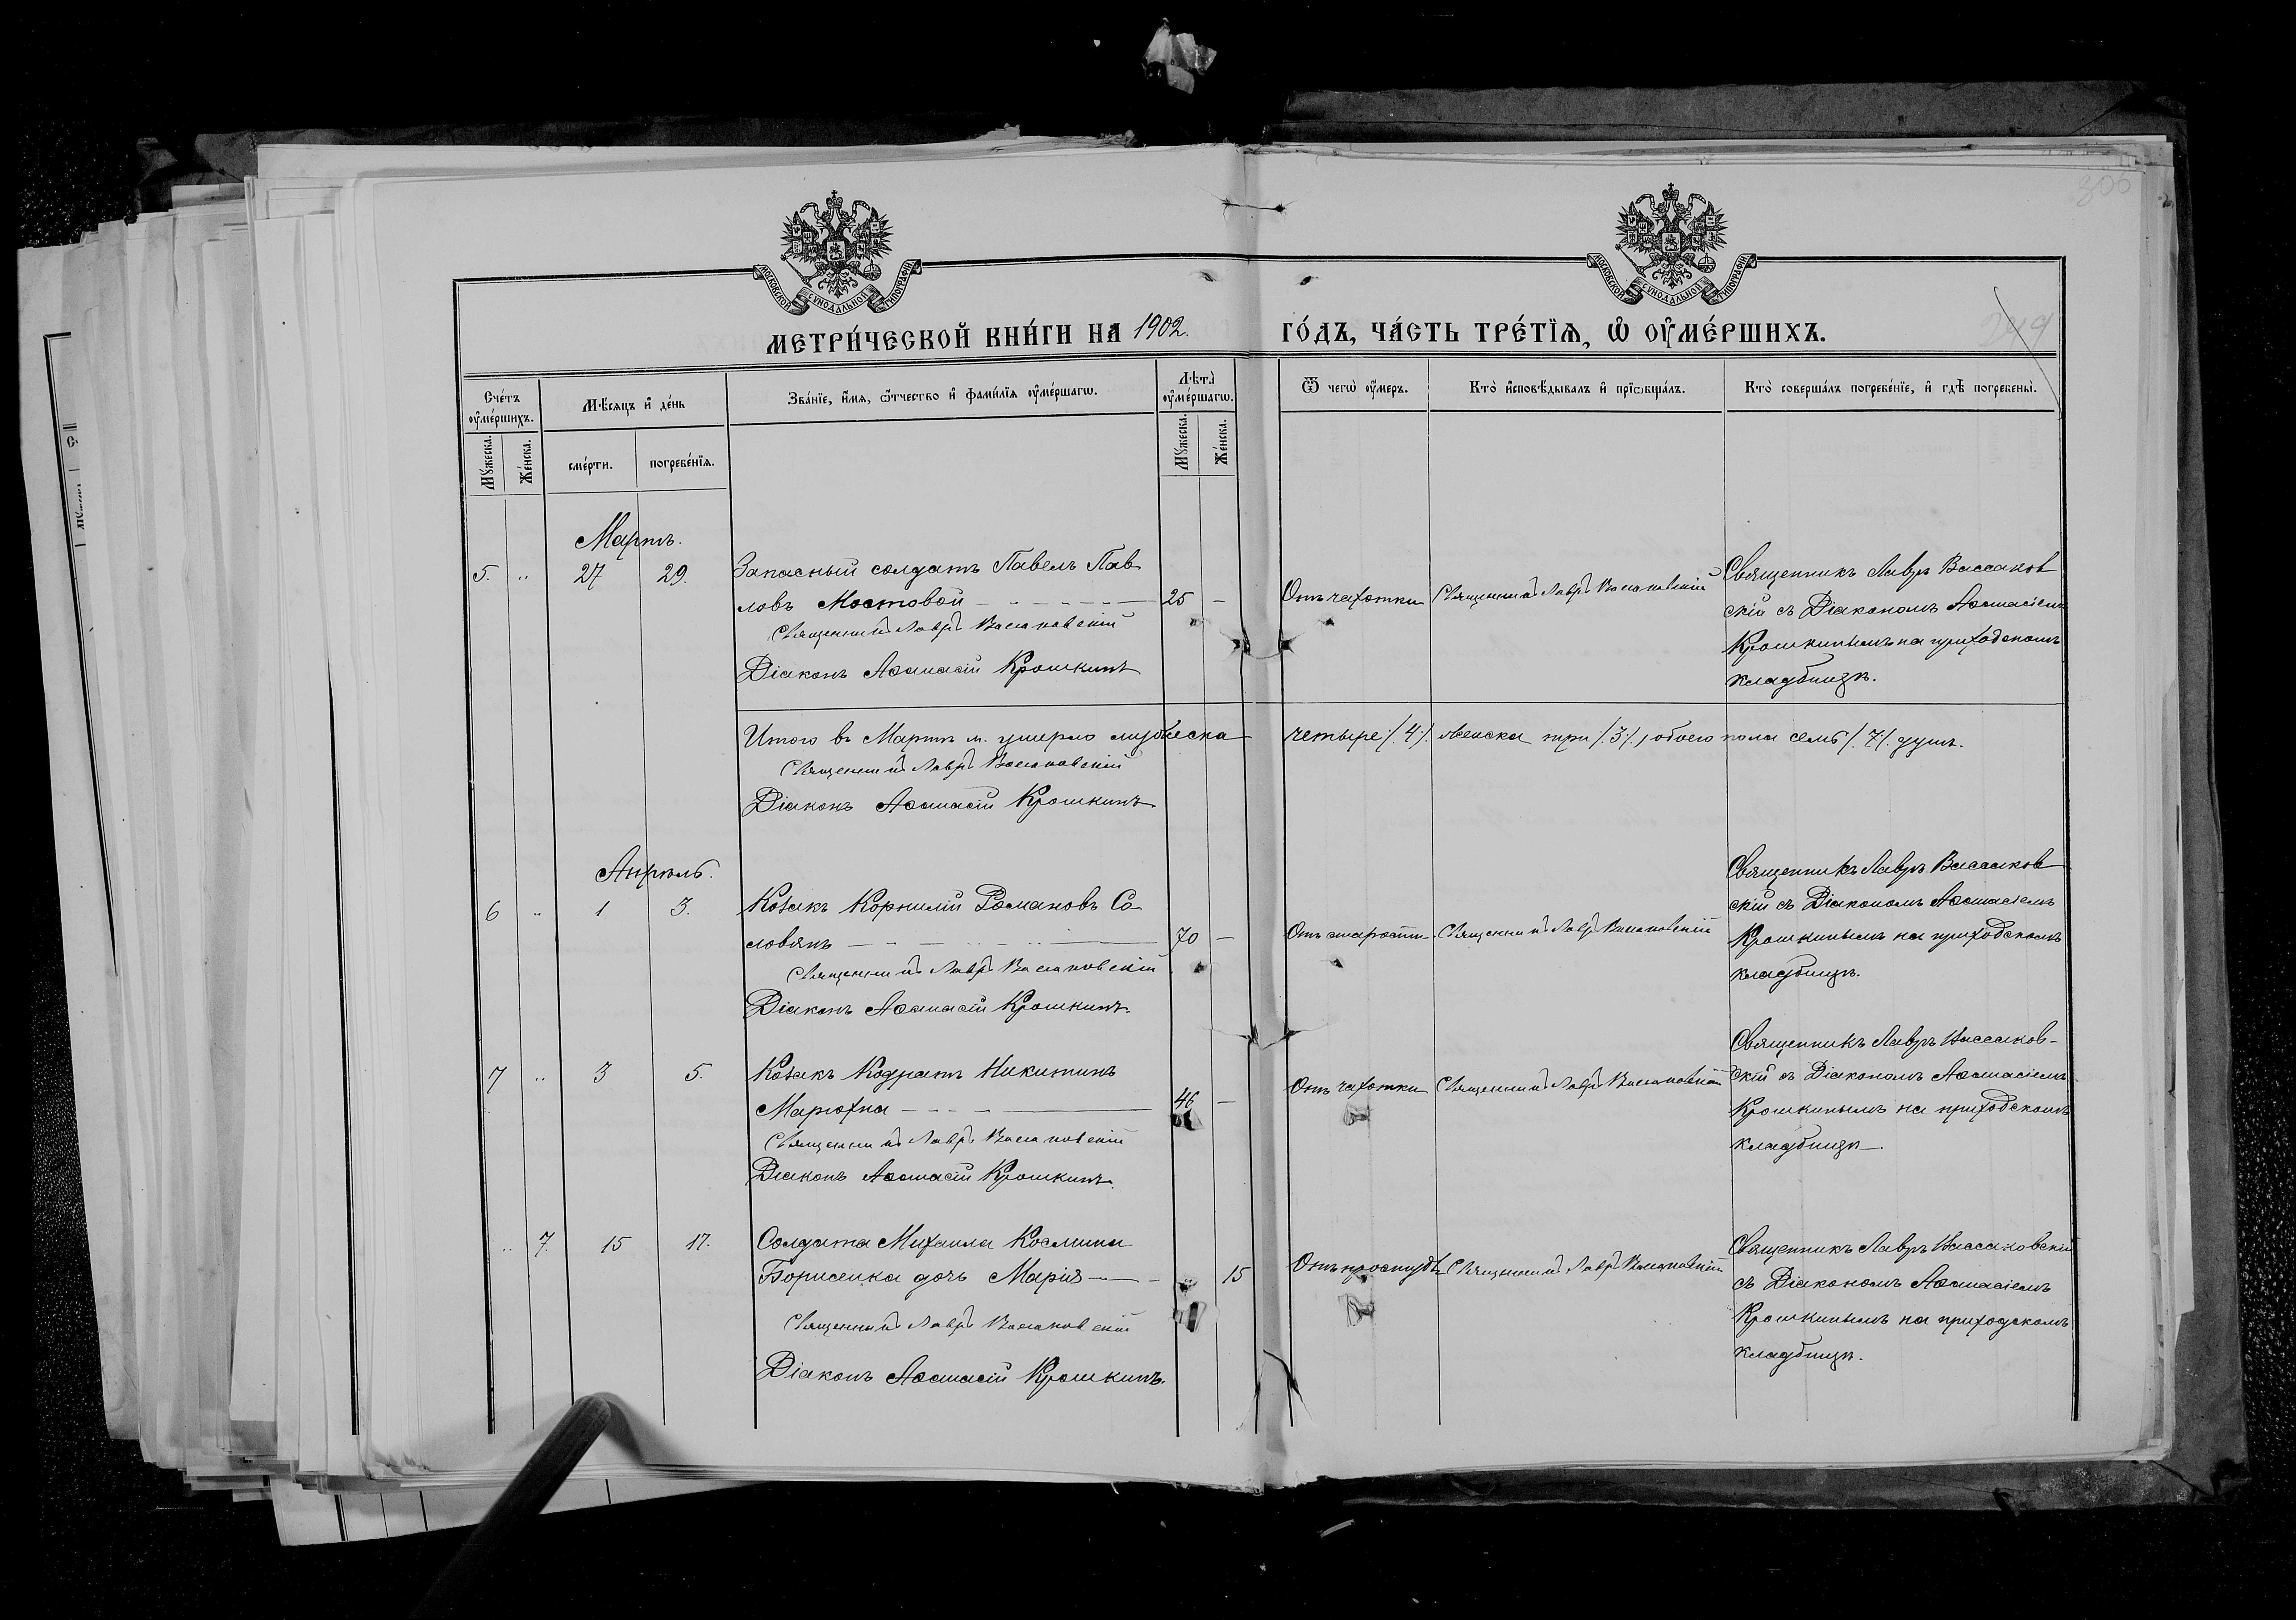 306
МОСКОВСКОЙ СѴНОДАЛЬНОЙ ТИПОГРАФІИ
МОСКОВСКОЙ СѴНОДАЛЬНОЙ ТИПОГРАФІИ
МЕТРИ́ЧЕСКОЙ КНИ́ГИ НА 1902. ГО́ДЪ, ЧА́СТЬ ТРЕ́ТЇѦ, Ѡ҆ ОУ҆МЕ́РШИХЪ.
249
Сче́тъ оу҆ме́ршихъ.
Мѣ́сѧцъ и҆ де́нь
Зва́нїе, и҆́мѧ, ѻ҆́тчество и҆ фами́лїѧ оу҆ме́ршагѡ.
Лѣ́та оу҆ме́ршагѡ.
Ѿ чегѡ̀ оу҆́меръ.
Кто̀ и҆сповѣ́дывалъ и҆ прїѡбща́лъ.
Кто̀ соверша́лъ погребе́нїе, и҆ гдѣ̀ погребены̀.
Мꙋ́жеска.
Же́нска.
сме́рти.
погребе́нїѧ.
Мꙋ́жеска.
Же́нска.
Мартъ.
5. „ 27 29.
Запасный солдатъ Павелъ Пав
ловъ Мостовой 25 –
Священникъ Лавръ Вассаковскій
Діаконъ Аѳанасій Крошкинъ
Отъ чахотки
Священникъ Лавръ Вассаковскій
Священникъ Лавръ Вассаков
скій съ Діакономъ Аѳанасіемъ
Крошкинымъ на приходскомъ
кладбищѣ.
Итого въ Мартѣ м. умерло мужеска четыре /.4/. женска три /.3/., обоего пола семь /.7/. душъ.
Священникъ Лавръ Вассаковскій
Діаконъ Аѳанасій Крошкинъ
Апрѣль.
6 „ 1 3.
Козакъ Корнилій Романовъ Со
ловянъ 70 –
Священникъ Лавръ Вассаковскій
Діаконъ Аѳанасій Крошкинъ.
Отъ старости
Священникъ Лавръ Вассаковскій
Священникъ Лавръ Вассаков
скій съ Діакономъ Аѳанасіемъ
Крошкинымъ на приходскомъ
кладбищѣ.
7 „ 3 5.
Козакъ Кодратъ Никитинъ
Марюхна 46 –
Священникъ Лавръ Вассаковскій
Діаконъ Аѳанасій Крошкинъ.
Отъ чахотки
Священникъ Лавръ Вассаковскій
Священникъ Лавръ Вассаков-
скій съ Діакономъ Аѳанасіемъ
Крошкинымъ на приходскомъ
кладбищѣ
„ 7. 15 17.
Солдата Михаила Космина
Борисенка дочь Марія 15
Священникъ Лавръ Вассаковскій
Діаконъ Аѳанасій Крошкинъ.
Отъ простуды
Священникъ Лавръ Вассаковскій
Священникъ Лавръ Вассаковскій
съ Діакономъ Аѳанасіемъ
Крошкинымъ на приходскомъ
кладбищѣ.